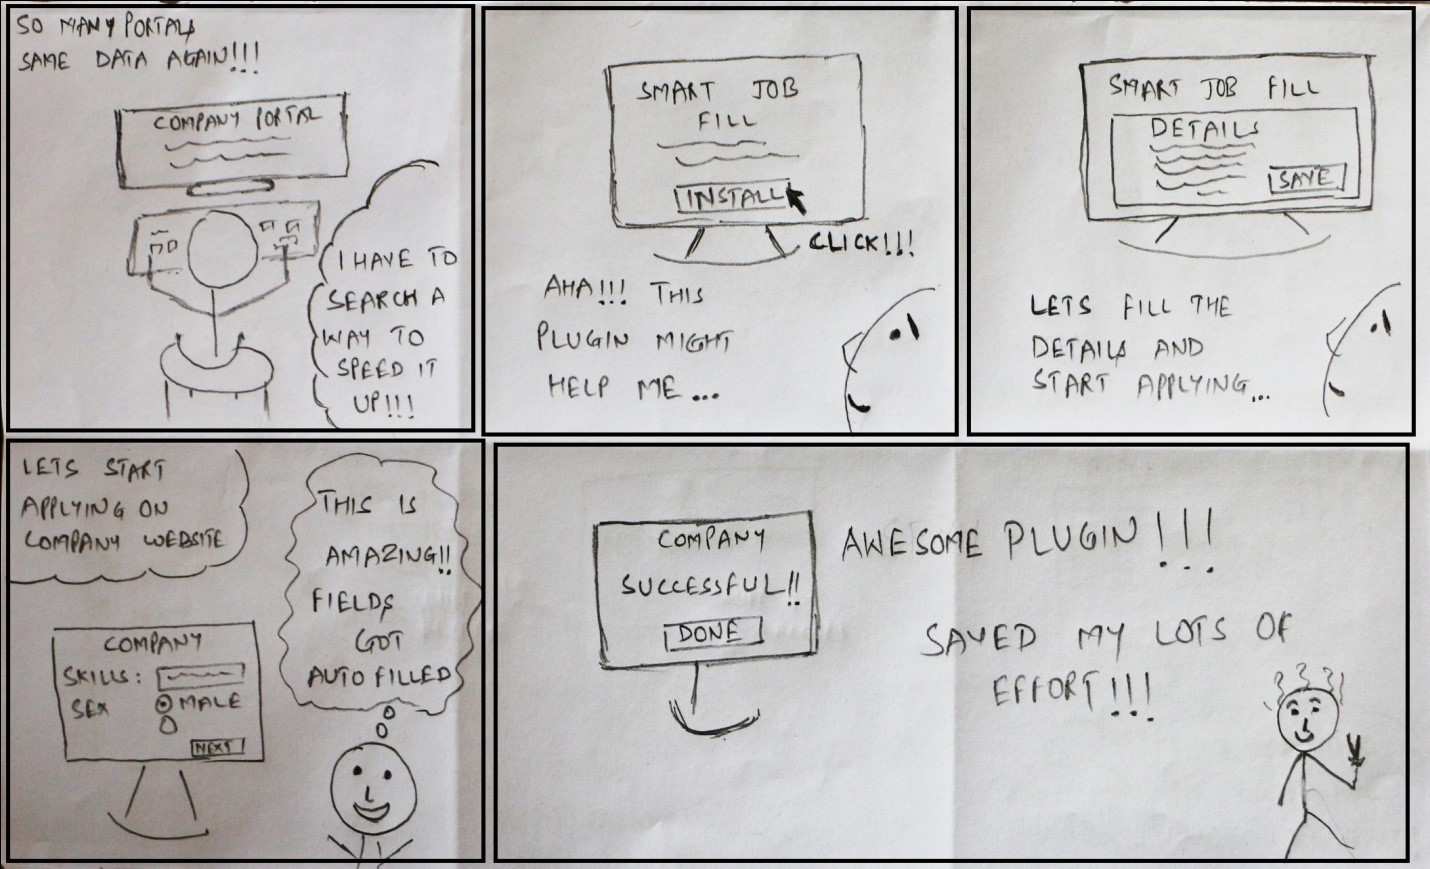 SO MANY PORTALS
SAME DATA AGAIN!!!
COMPANY PORTAL
I HAVE TO
SEARCH A
WAY TO
SPEED IT
UP!!!
SMART JOB
FILL
INSTALL
CLICK!!!
AHA!!! THIS
PLUGIN MIGHT
HELP ME...
SMART JOB FILL
DETAILS
SAVE
LETS FILL THE
DETAILS AND
START APPLYING...
LETS START
APPLYING ON
COMPANY WEBSITE
THIS IS
AMAZING!!
FIELDS
GOT
AUTO FILLED
COMPANY
SKILLS:
SEX MALE
NEXT
COMPANY
SUCCESSFUL!!
DONE
AWESOME PLUGIN!!!
SAVED MY LOTS OF
EFFORT!!!